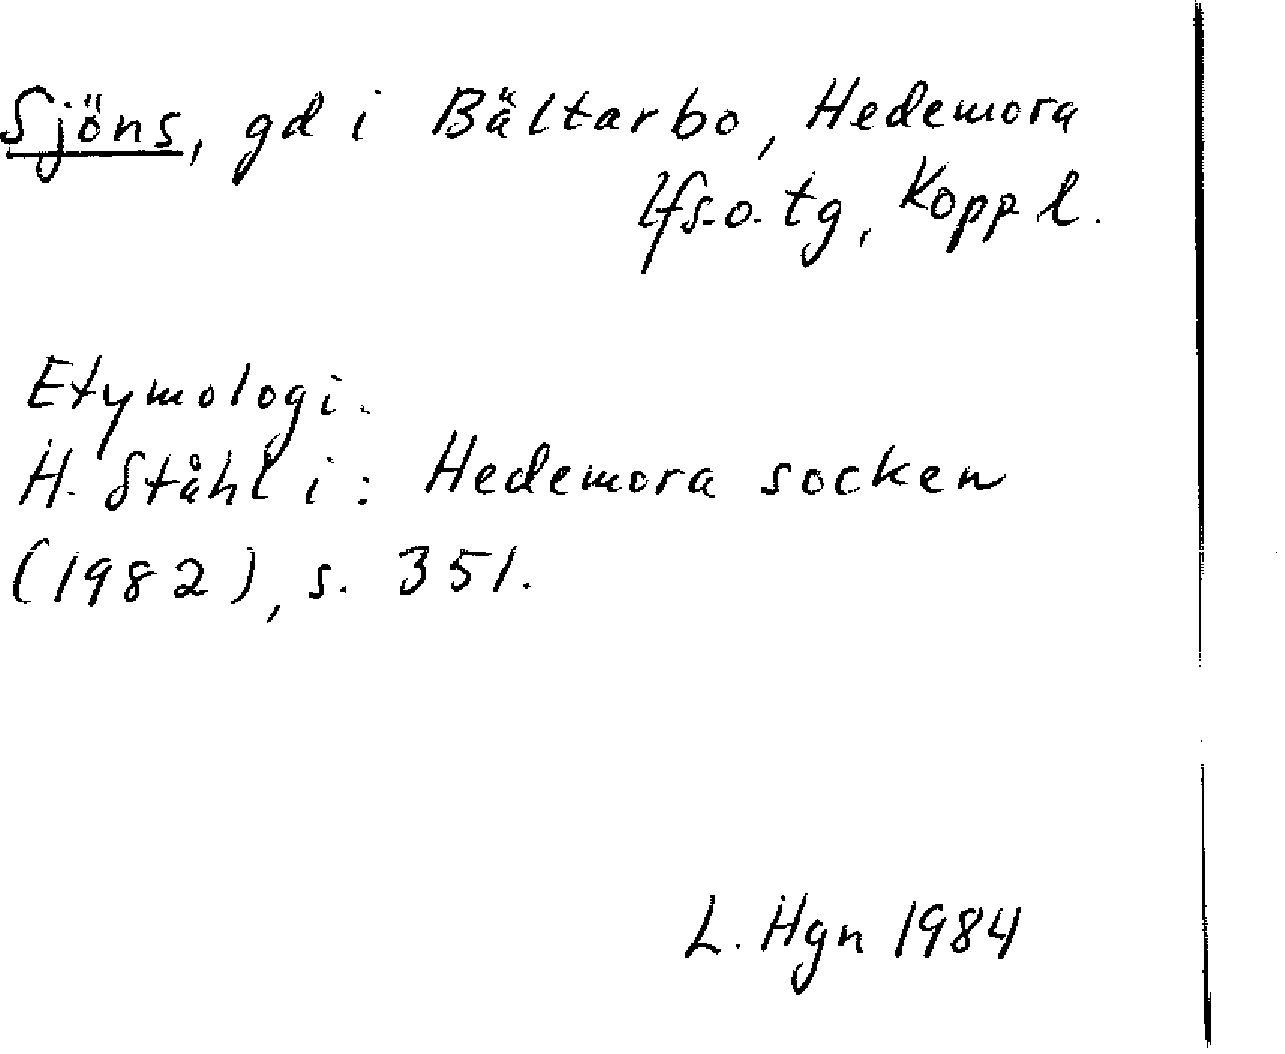 Sjöns, gd i Bältarbo, Hedemora
lfs. o. tg, Kopp l.
Etymologi.
H. Ståhl i: Hedemora socken
(1982), s. 351.
L. Hgn 1984